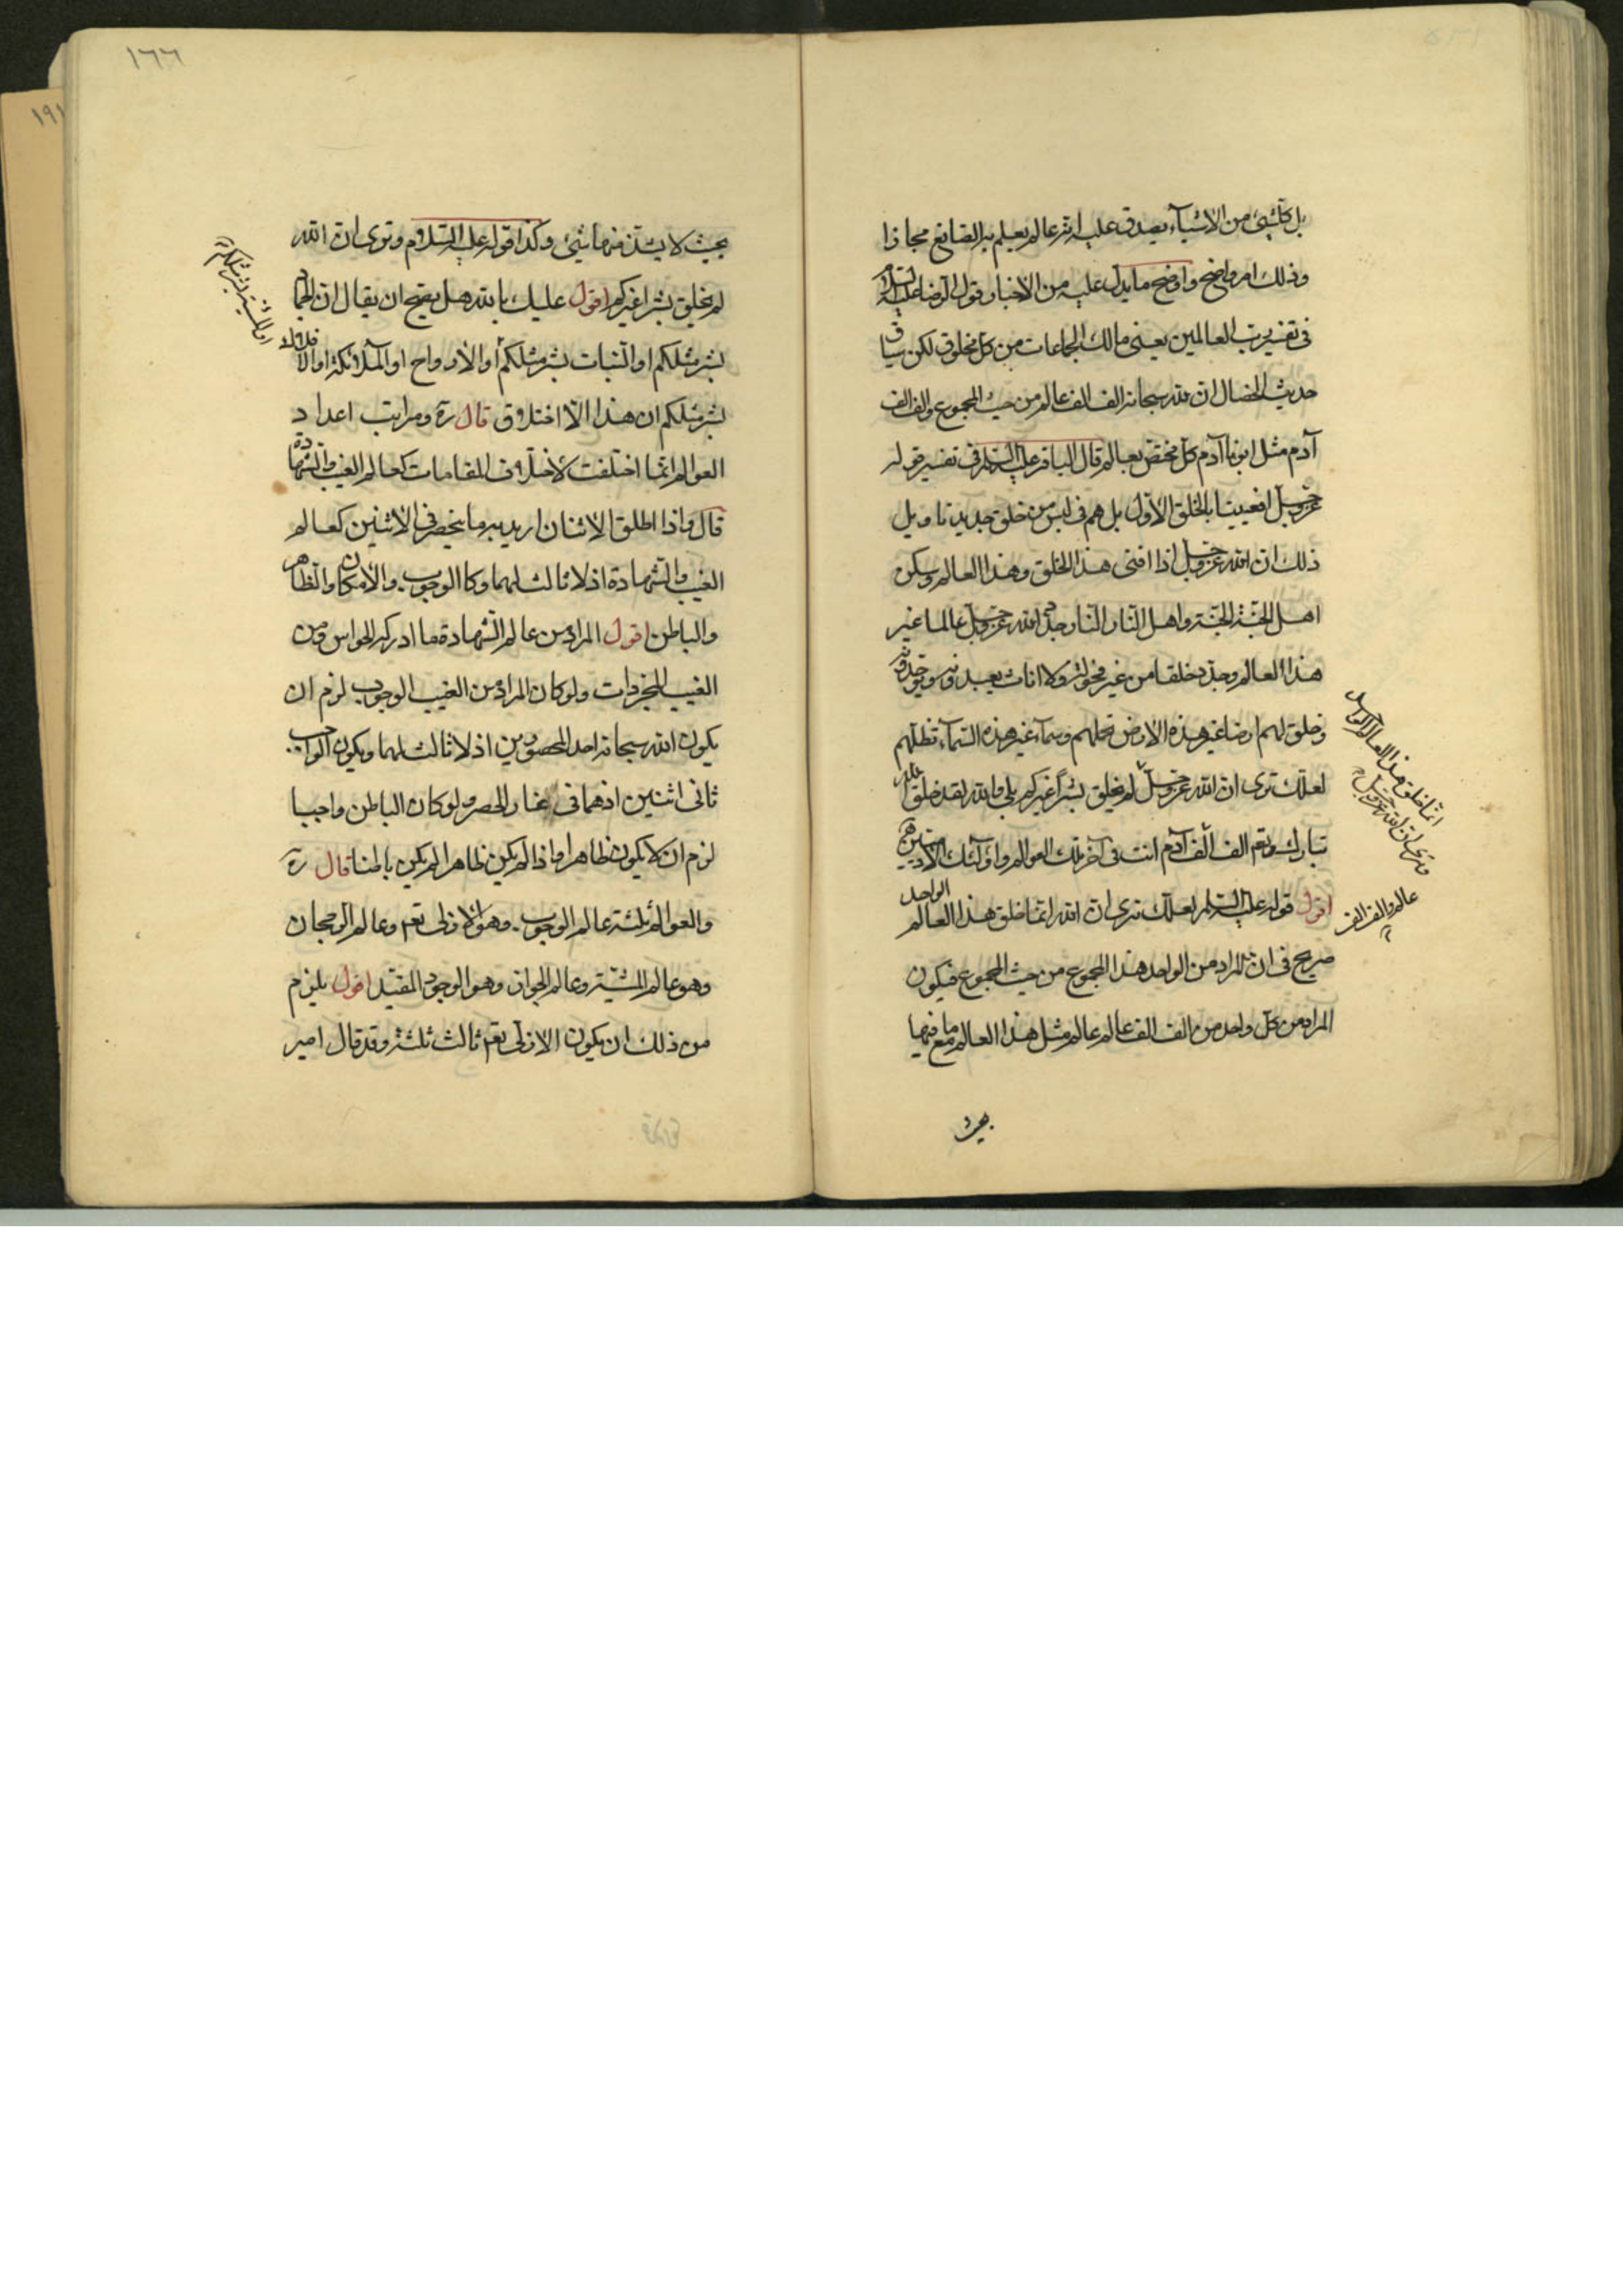 بل كلّ شئ من الاشيآء يصدق عليه انه عالم يعلم به الصانع مجازا
وذلك امر واضح واوضح ما يدل عليه من الاخبار قول الرضا عليه السلام
فى تفسير رب العالمين يعنى مالك الجماعات من كل مخلوق لكن سياق
حديث الخصال ان لله سبحانه الف الف عالم من حيث المجموع والف الف
آدم مثل ابونا آدم كل مختص بعالم قال الباقر عليه السلام فى تفسير قوله
عز وجل افعيينا بالخلق الاول بل هم فى لبس من خلق جديد تاويل
ذلك ان الله عز وجل اذا افنى هذا الخلق وهذا العالم وسكن
اهل الجنة الجنة واهل النار النار جدد الله عز وجل عالما غير
هذا العالم وجدد خلقا من غير فحولة ولا اناث يعبدونه ويوحدونه
وخلق لهم ارضا غير هذه الارض تحملهم وسمآء غير هذه السمآء تظلهم
لعلك ترى ان الله عز وجل لم يخلق بشرا غيركم بلى والله لقد خلق الله
تبارك وتعم الف الف آدم انت فى آخر تلك العوالم واولئك الآدميين
اقول قوله عليه السلم لعلك ترى ان الله انما خلق هذا العالم الواحد
صريح فى ان المراد من الواحد هذا المجموع من حيث المجموع فيكون
المراد من كل واحد من الف الف عالم عالم مثل هذا العالم مع ما فيها
بحيث
انما خلق هذا العالم الواحد
وترى ان الله عز وجل
عالم والف الف
١٦٦
بحيث لا يشذ منها شئ وكذا قوله عليه السلام وترى ان الله
لم يخلق بشرا غيركم اقول عليك بالله هل يصح ان يقال ان الجماد
بشر مثلكم او النبات بشر مثلكم او الارواح او الملائكة او الافلاك
بشر مثلكم ان هذا الا اختلاق قال ره ومراتب اعداد
العوالم انما اختلفت لاختلاف المقامات كعالم الغيب والشهادة
قال واذا اطلق الاثنان اريد به ما ينحصر فى الاثنين كعالم
الغيب والشهادة اذ لا ثالث لهما وكا الوجوب والامكان والظاهر
والباطن اقول المراد من عالم الشهادة ما ادركه الحواس ومن
الغيب المجردات ولو كان المراد من الغيب الوجوب لزم ان
يكون الله سبحانه احد المحصورين اذ لا ثالث لهما ويكون الواجب
ثانى اثنين اذ هما فى غار الحصر ولو كان الباطن واجبا
لزم ان لا يكون ظاهرا واذا لم يكن ظاهرا لم يكن باطنا قال ره
والعوالم ثلثة عالم الوجوب وهو الازلى تعم وعالم الرجحان
وهو عالم المشية وعالم الجواز وهو الوجود المقيد اقول يلزم
من ذلك ان يكون الازلى تعم ثالث ثلثة وقد قال امير
او المشية بشر مثلكم
١٩١